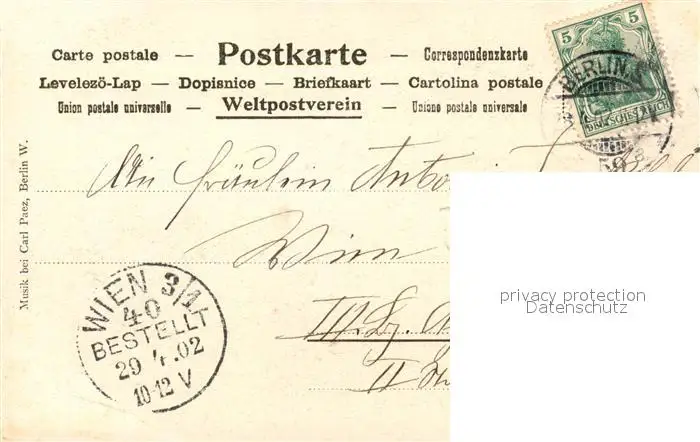 Carte postale — Postkarte — Correspondenzkarte
Levelezö-Lap — Dopisnice — Briefkaart — Cartolina postale
Union postale universelle — Weltpostverein — Unione postale universale
5 5
BERLIN,S.
DEUTSCHES REICH
An Fräulein
Wien
II
Musik bei Carl Paez, Berlin W.
WIEN 3/1
40
BESTELLT
29 4.02
10-12 V
privacy protection
Datenschutz